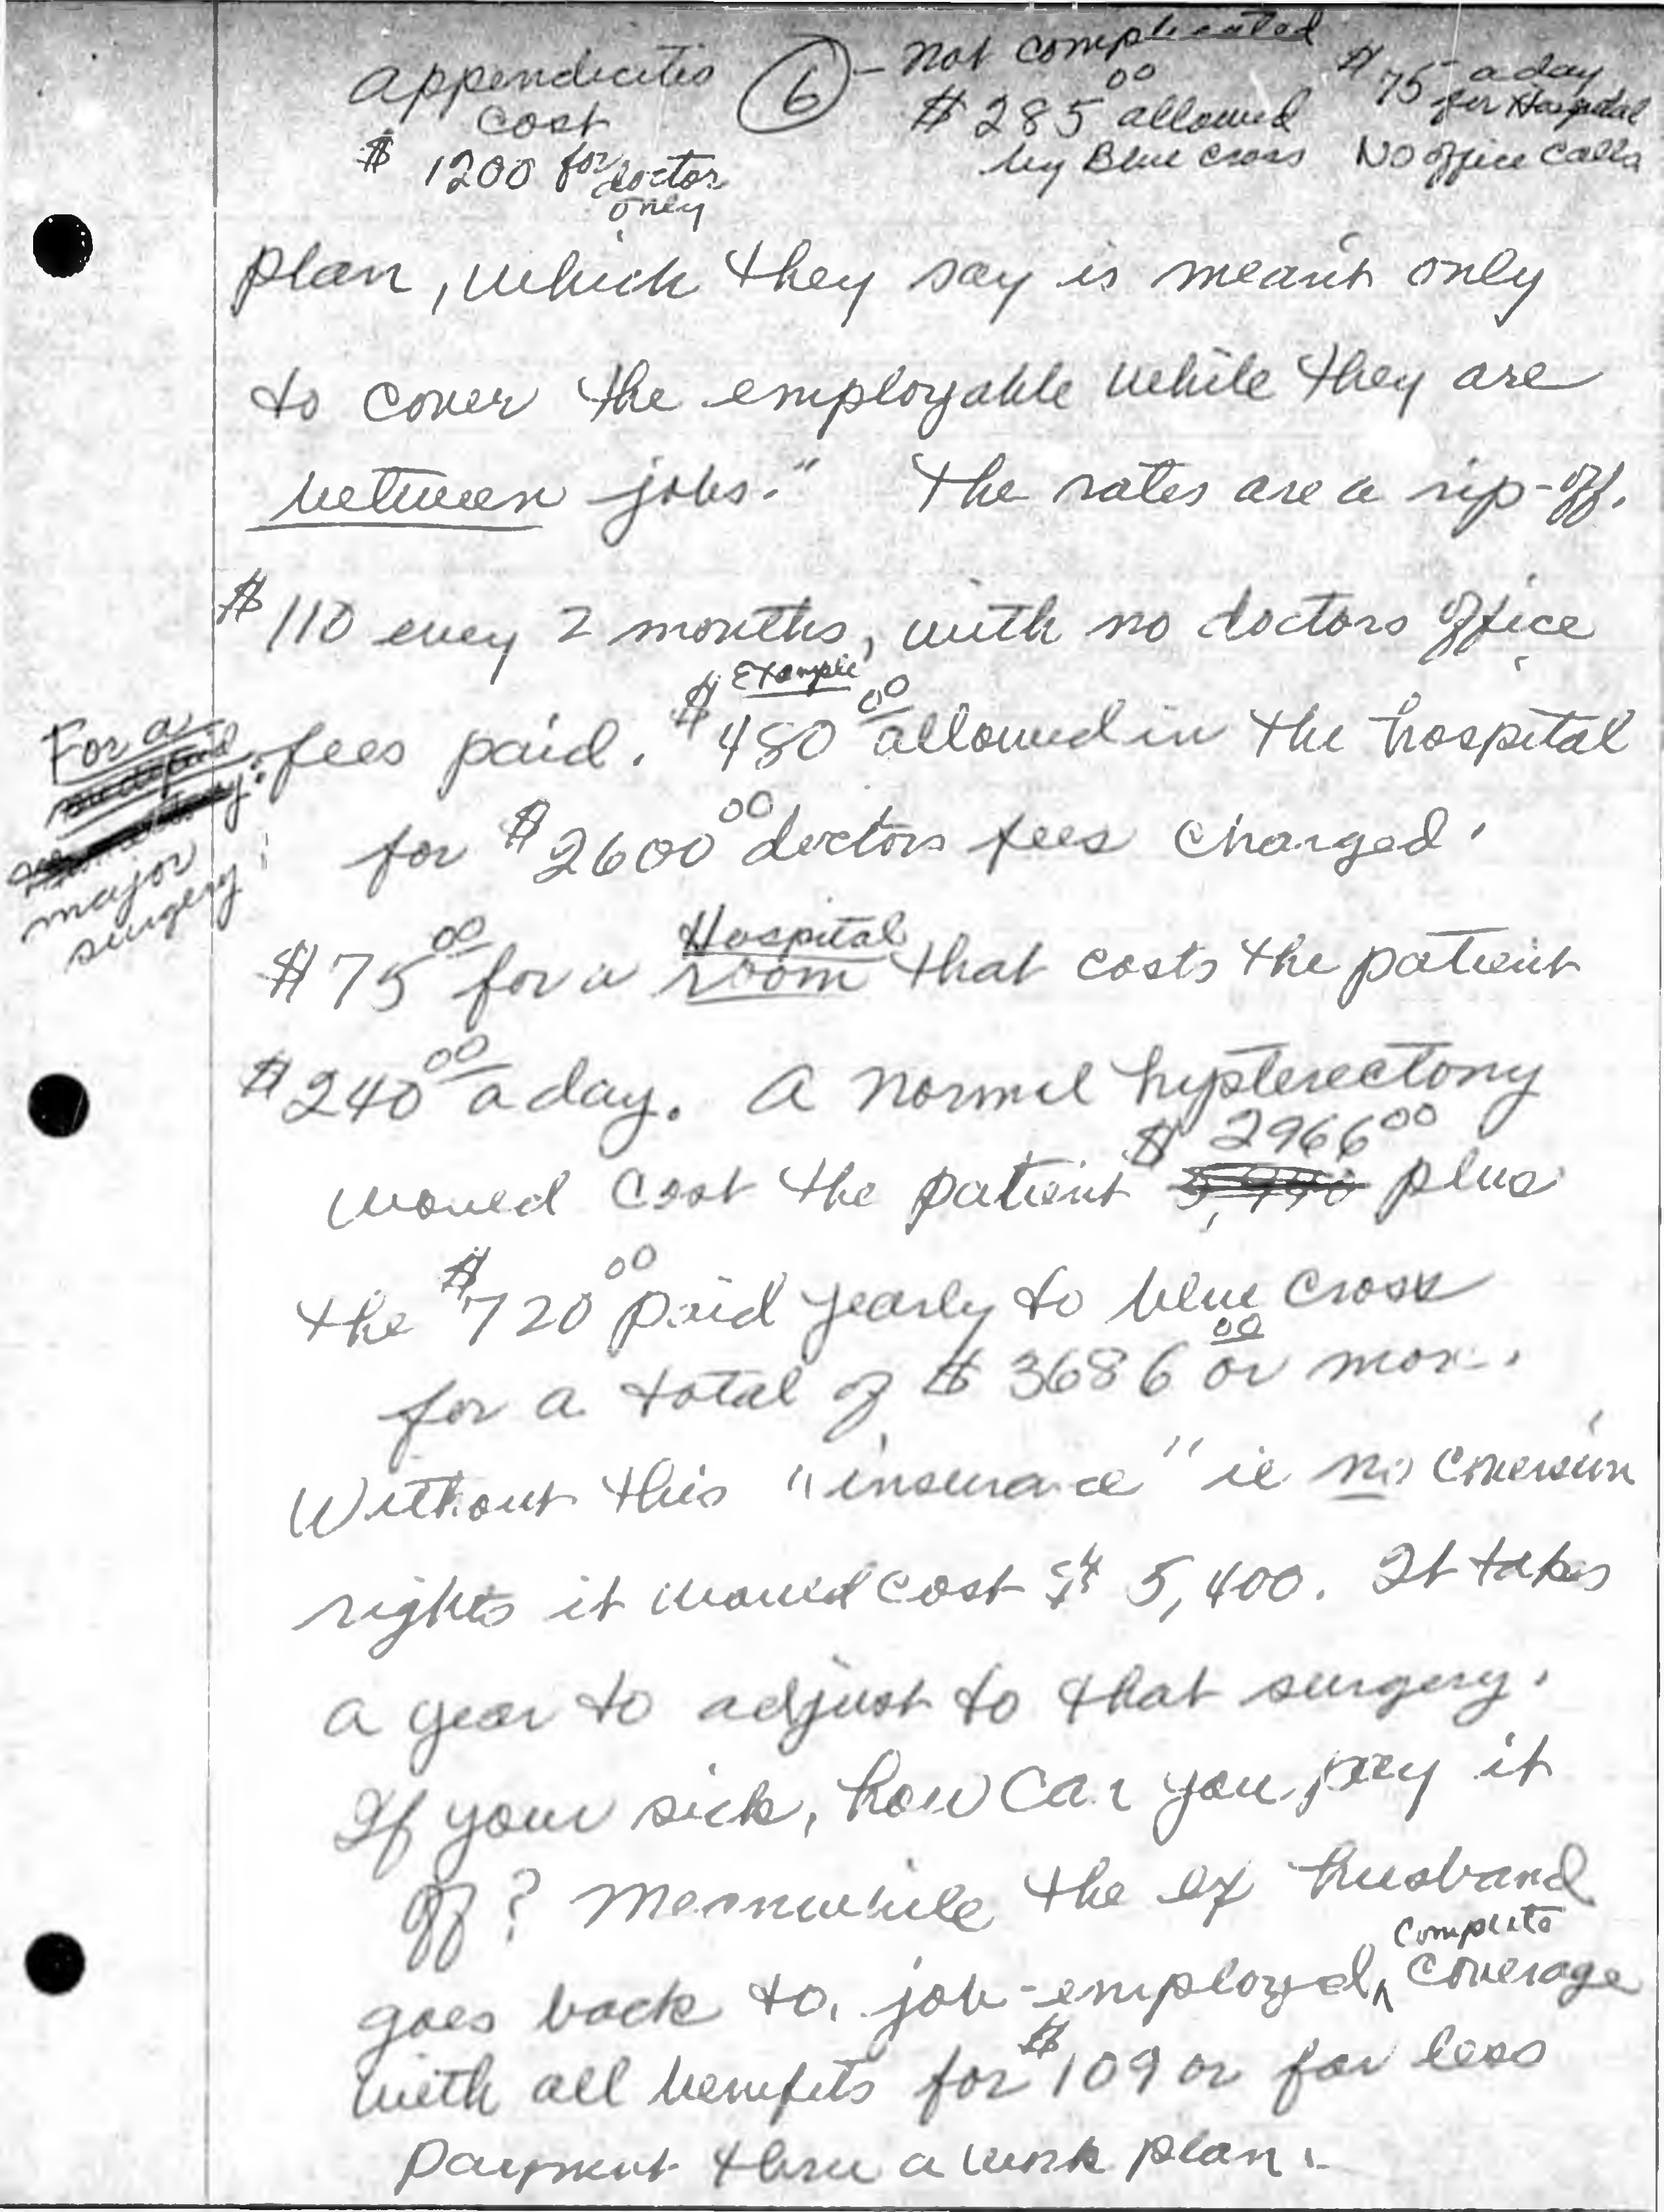 appendicitis
cost
$ 1200 for doctor
only
6
- not complicated
$ 285 00 allowed
by Blue Cross
$ 75 a day
for Hospital
No office calls
plan, which they say is meant only
to cover the employable while they are
between jobs." The rates are a rip-off.
$ 110 every 2 months, with no doctors office
Example
fees paid. $ 480 00 allowed in the hospital
For a
major
surgery
for $ 2600 00 doctors fees charged.
Hospital
$ 75 00 for a room that costs the patient
$ 240 00 a day. A normal hysterectomy
$ 2966 00
would cost the patient plus
the $ 720 00 paid yearly to blue cross
for a total of $ 3686 00 or more.
Without this "insurance" ie no conversion
rights it would cost $ 5,400. It takes
a year to adjust to that surgery.
If your sick, how can you pay it
off? Meanwhile the ex husband
complete
goes back to job-employed, coverage
with all benefits for $ 109 or far less
payment thru a work plan.